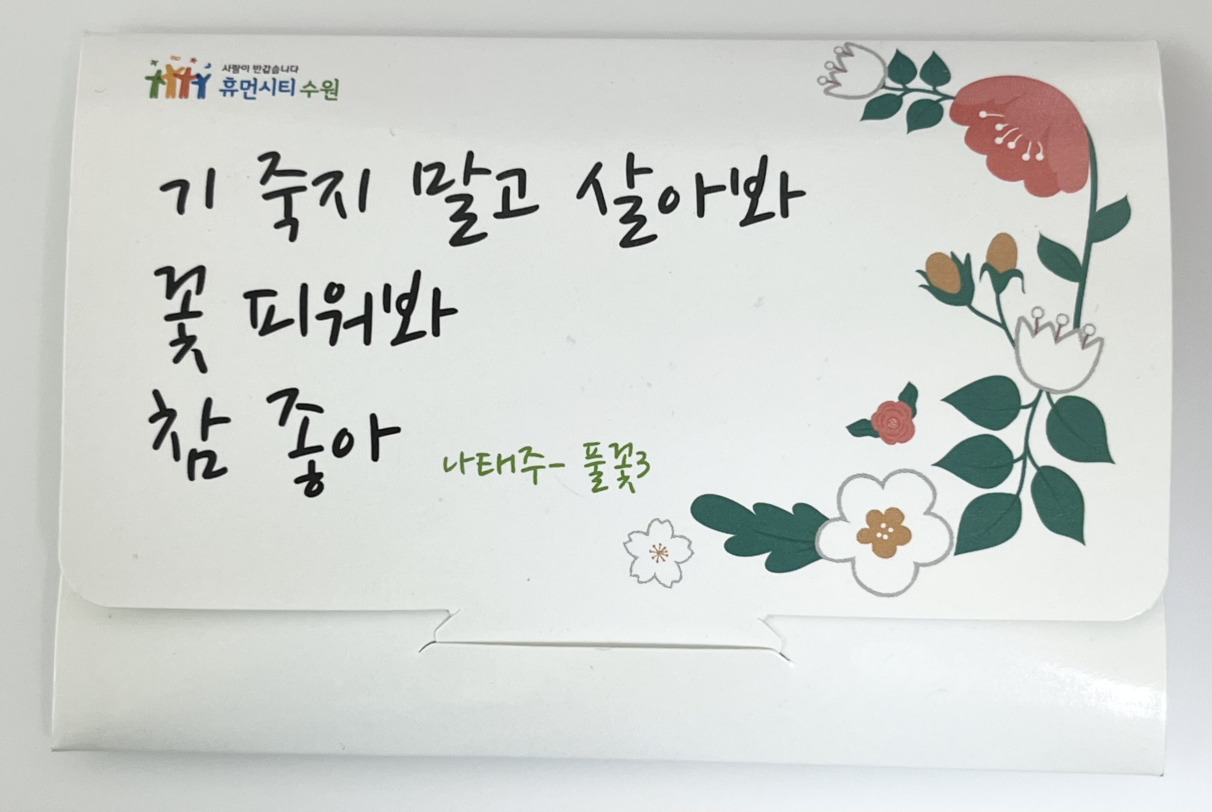 사람이 반갑습니다
휴먼시티 수원
기 죽지 말고 살아봐
꽃 피워봐
참 좋아
나태주- 풀꽃3